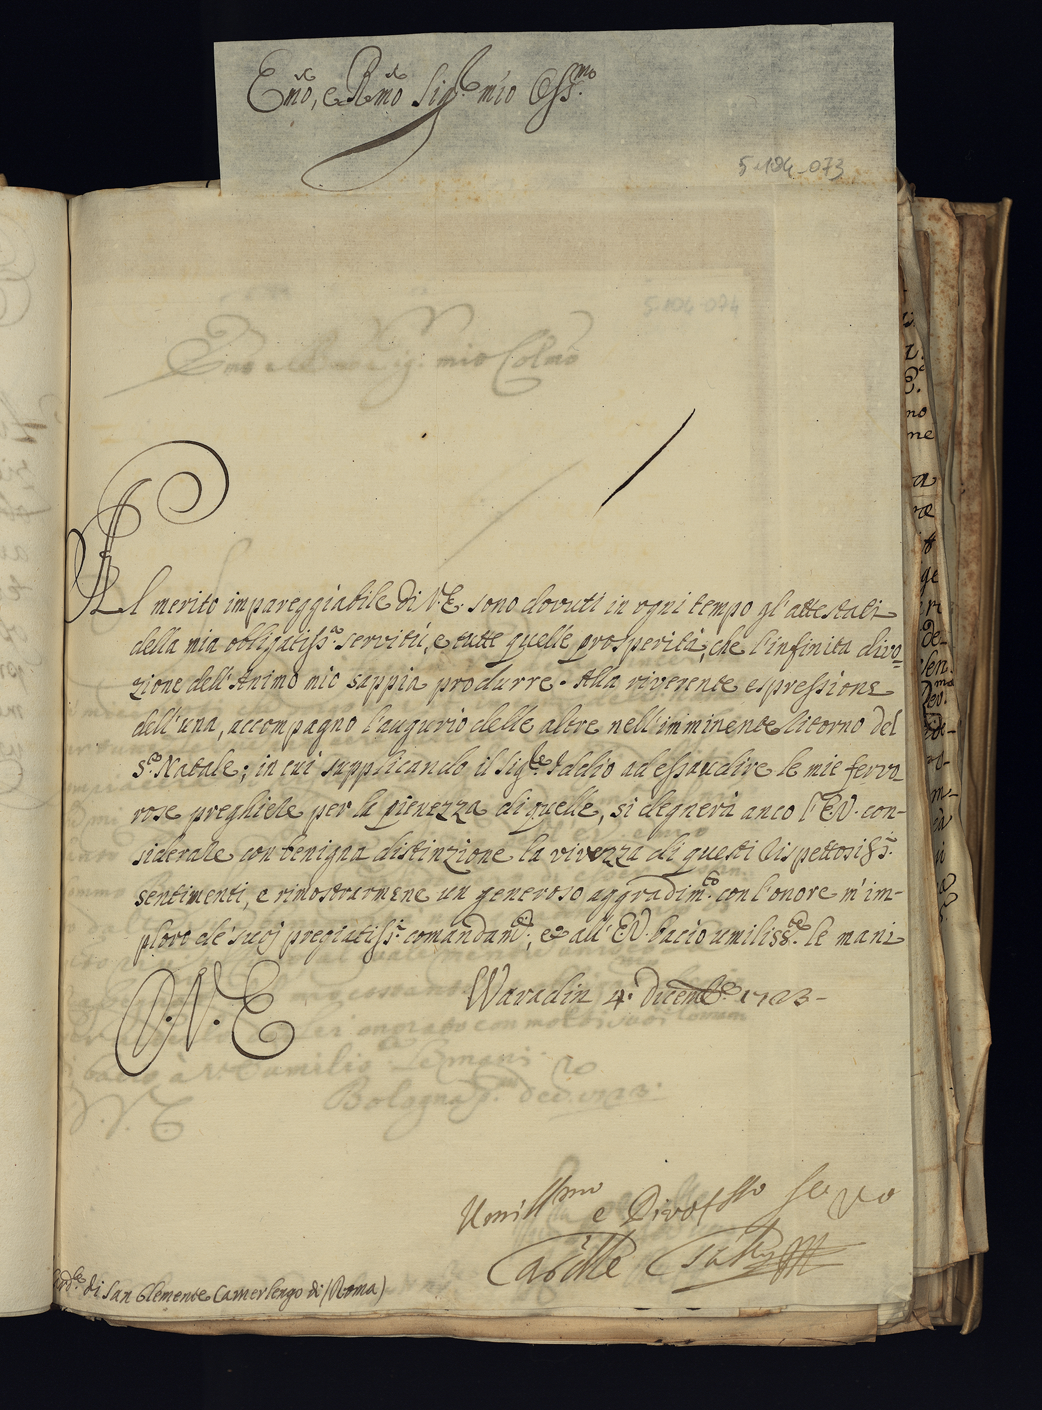 Emo, e Rmo Sig.re mio Oss.mo
5-104-073
Al merito impareggiabile di V. E. sono dovuti in ogni tempo gl'attestati
della mia obbligatiss.a servitù, e tutte quelle prosperità, che l'infinita divo=
zione dell'Animo mio sappia produrre. Alla riverente espressione
dell'una, accompagno l'augurio delle altre nell'imminente Ritorno del
S.o Natale; in cui supplicando il Sig.re Iddio ad essaudire le mie fervo
rose preghiere per la pienezza di quelle, si degnerà anco l'E.V. con-
siderare con benigna distinzione la vivezza di questi Rispettosiss.i
sentimenti, e rimostrarmene un generoso aggradim.to con l'onore m'im-
ploro de' suoj pregiatiss.i comandam.ti; et all'E.V. bacio umiliss.te le mani
D. V. E.
Waradin 4. Dicemb.e 1723-
Umilissmo e Divotissmo Servo
Card.le Csáky
Card.le di San Clemente Camerlengo di (Roma)
Emo e Rmo Sig: mio Colmo
5-104-074
Bologna p.mo dec. 1723.